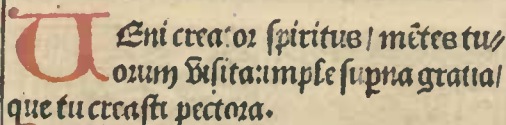 UEni creator spiritus / mētes tu⸗
orum visita: imple supna gratia /
que tu creasti pectora.